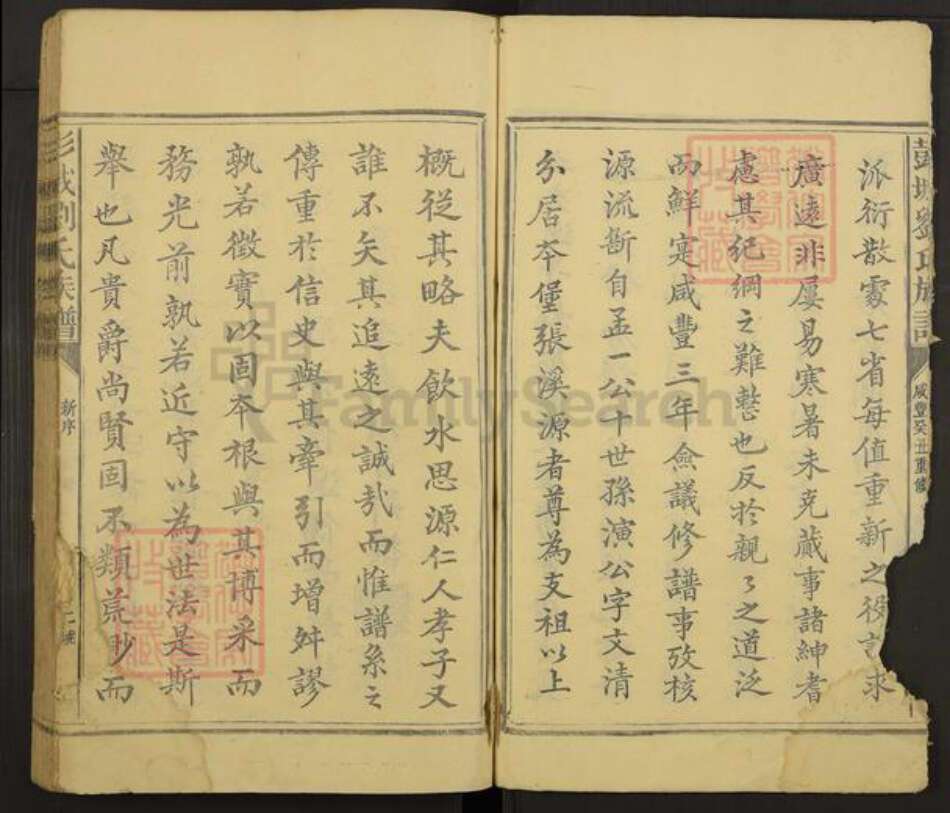 彭城劉氏族譜
咸豐癸丑重修
派衍散處七省每值重新之役諮求
廣遠非屢易寒暑未克蕆事諸紳耆
慮其紀綱之難整也反於親〻之道泛
而鮮寔咸豐三年僉議修譜事攷核
源流斷自孟一公十世孫演公字文清
分居本堡張溪源者尊為支祖以上
概從其略夫飲水思源仁人孝子又
誰不矢其追遠之誠哉而惟譜系之
傳重於信史與其牽引而增舛謬
孰若徵實以固本根與其博采而
務光前孰若近守以為世法是斯
舉也凡貴爵尚賢固不類荒眇而
彭城劉氏族譜
新序
二號
FamilySearch